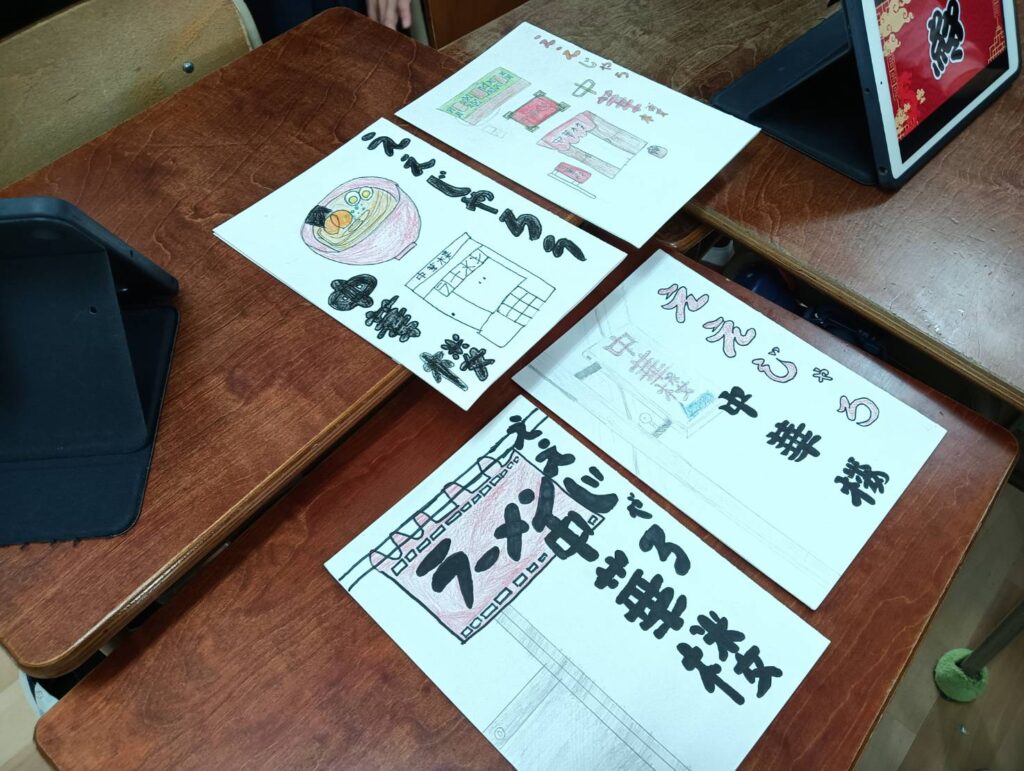 ええじゃろ
中華楼
ええじゃろう
中華楼
中華楼
ラーメン
ええじゃろ
中華楼
中華楼
ええじゃろ
中華楼
ラーメン